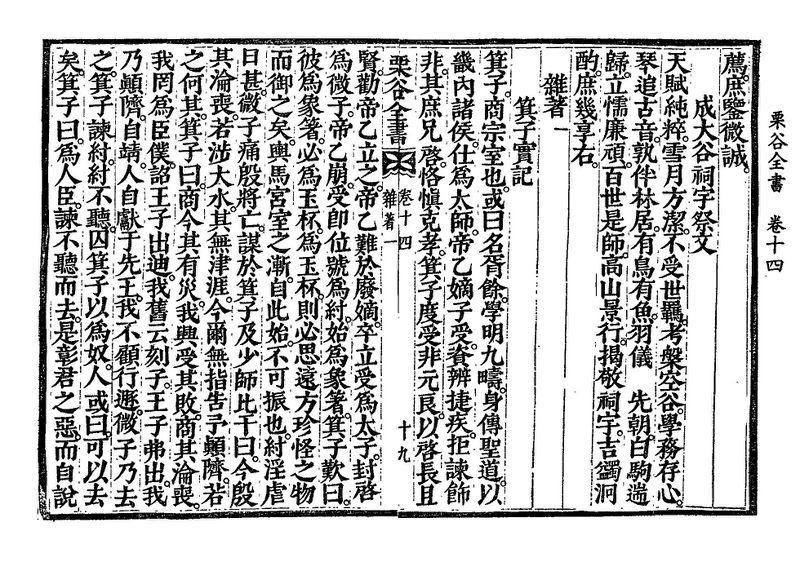 栗谷全書 卷十四
薦。庶鑒微誠。
成大谷祠宇祭文
天賦純粹。雪月方潔。不受世羈。考槃空谷。學務存心。
琴追古音。孰伴林居。有鳥有魚。羽儀 先朝。白駒遄
歸。立懦廉頑。百世是師。高山景行。揭敬祠宇。吉蠲泂
酌。庶幾享右。
雜著一
箕子實記
箕子。商宗室也。或曰名胥餘。學明九疇。身傳聖道。以
畿內諸侯。仕爲太師。帝乙嫡子受。資辨捷疾。拒諫飾
非。其庶兄啓。恪愼克孝。箕子度受非元良。以啓長且
栗谷全書 卷十四 雜著一 十九
賢。勸帝乙立之。帝乙難於廢嫡。卒立受爲太子。封啓
爲微子。帝乙崩。受卽位。號爲紂。始爲象箸。箕子歎曰。
彼爲象箸。必爲玉杯。爲玉杯。則必思遠方珍怪之物
而御之矣。輿馬宮室之漸。自此始。不可振也。紂淫虐
日甚。微子痛殷將亡。謀於箕子及少師比干曰。今殷
其淪喪。若涉大水。其無津涯。今爾無指告予顚隮。若
之何其。箕子曰。商今其有災。我興受其敗。商其淪喪。
我罔爲臣僕。詔王子出迪。我舊云刻子。王子弗出。我
乃顚隮。自靖。人自獻于先王。我不顧行遯。微子乃去
之。箕子諫紂。紂不聽。囚箕子以爲奴。人或曰。可以去
矣。箕子曰。爲人臣。諫不聽而去。是彰君之惡。而自說